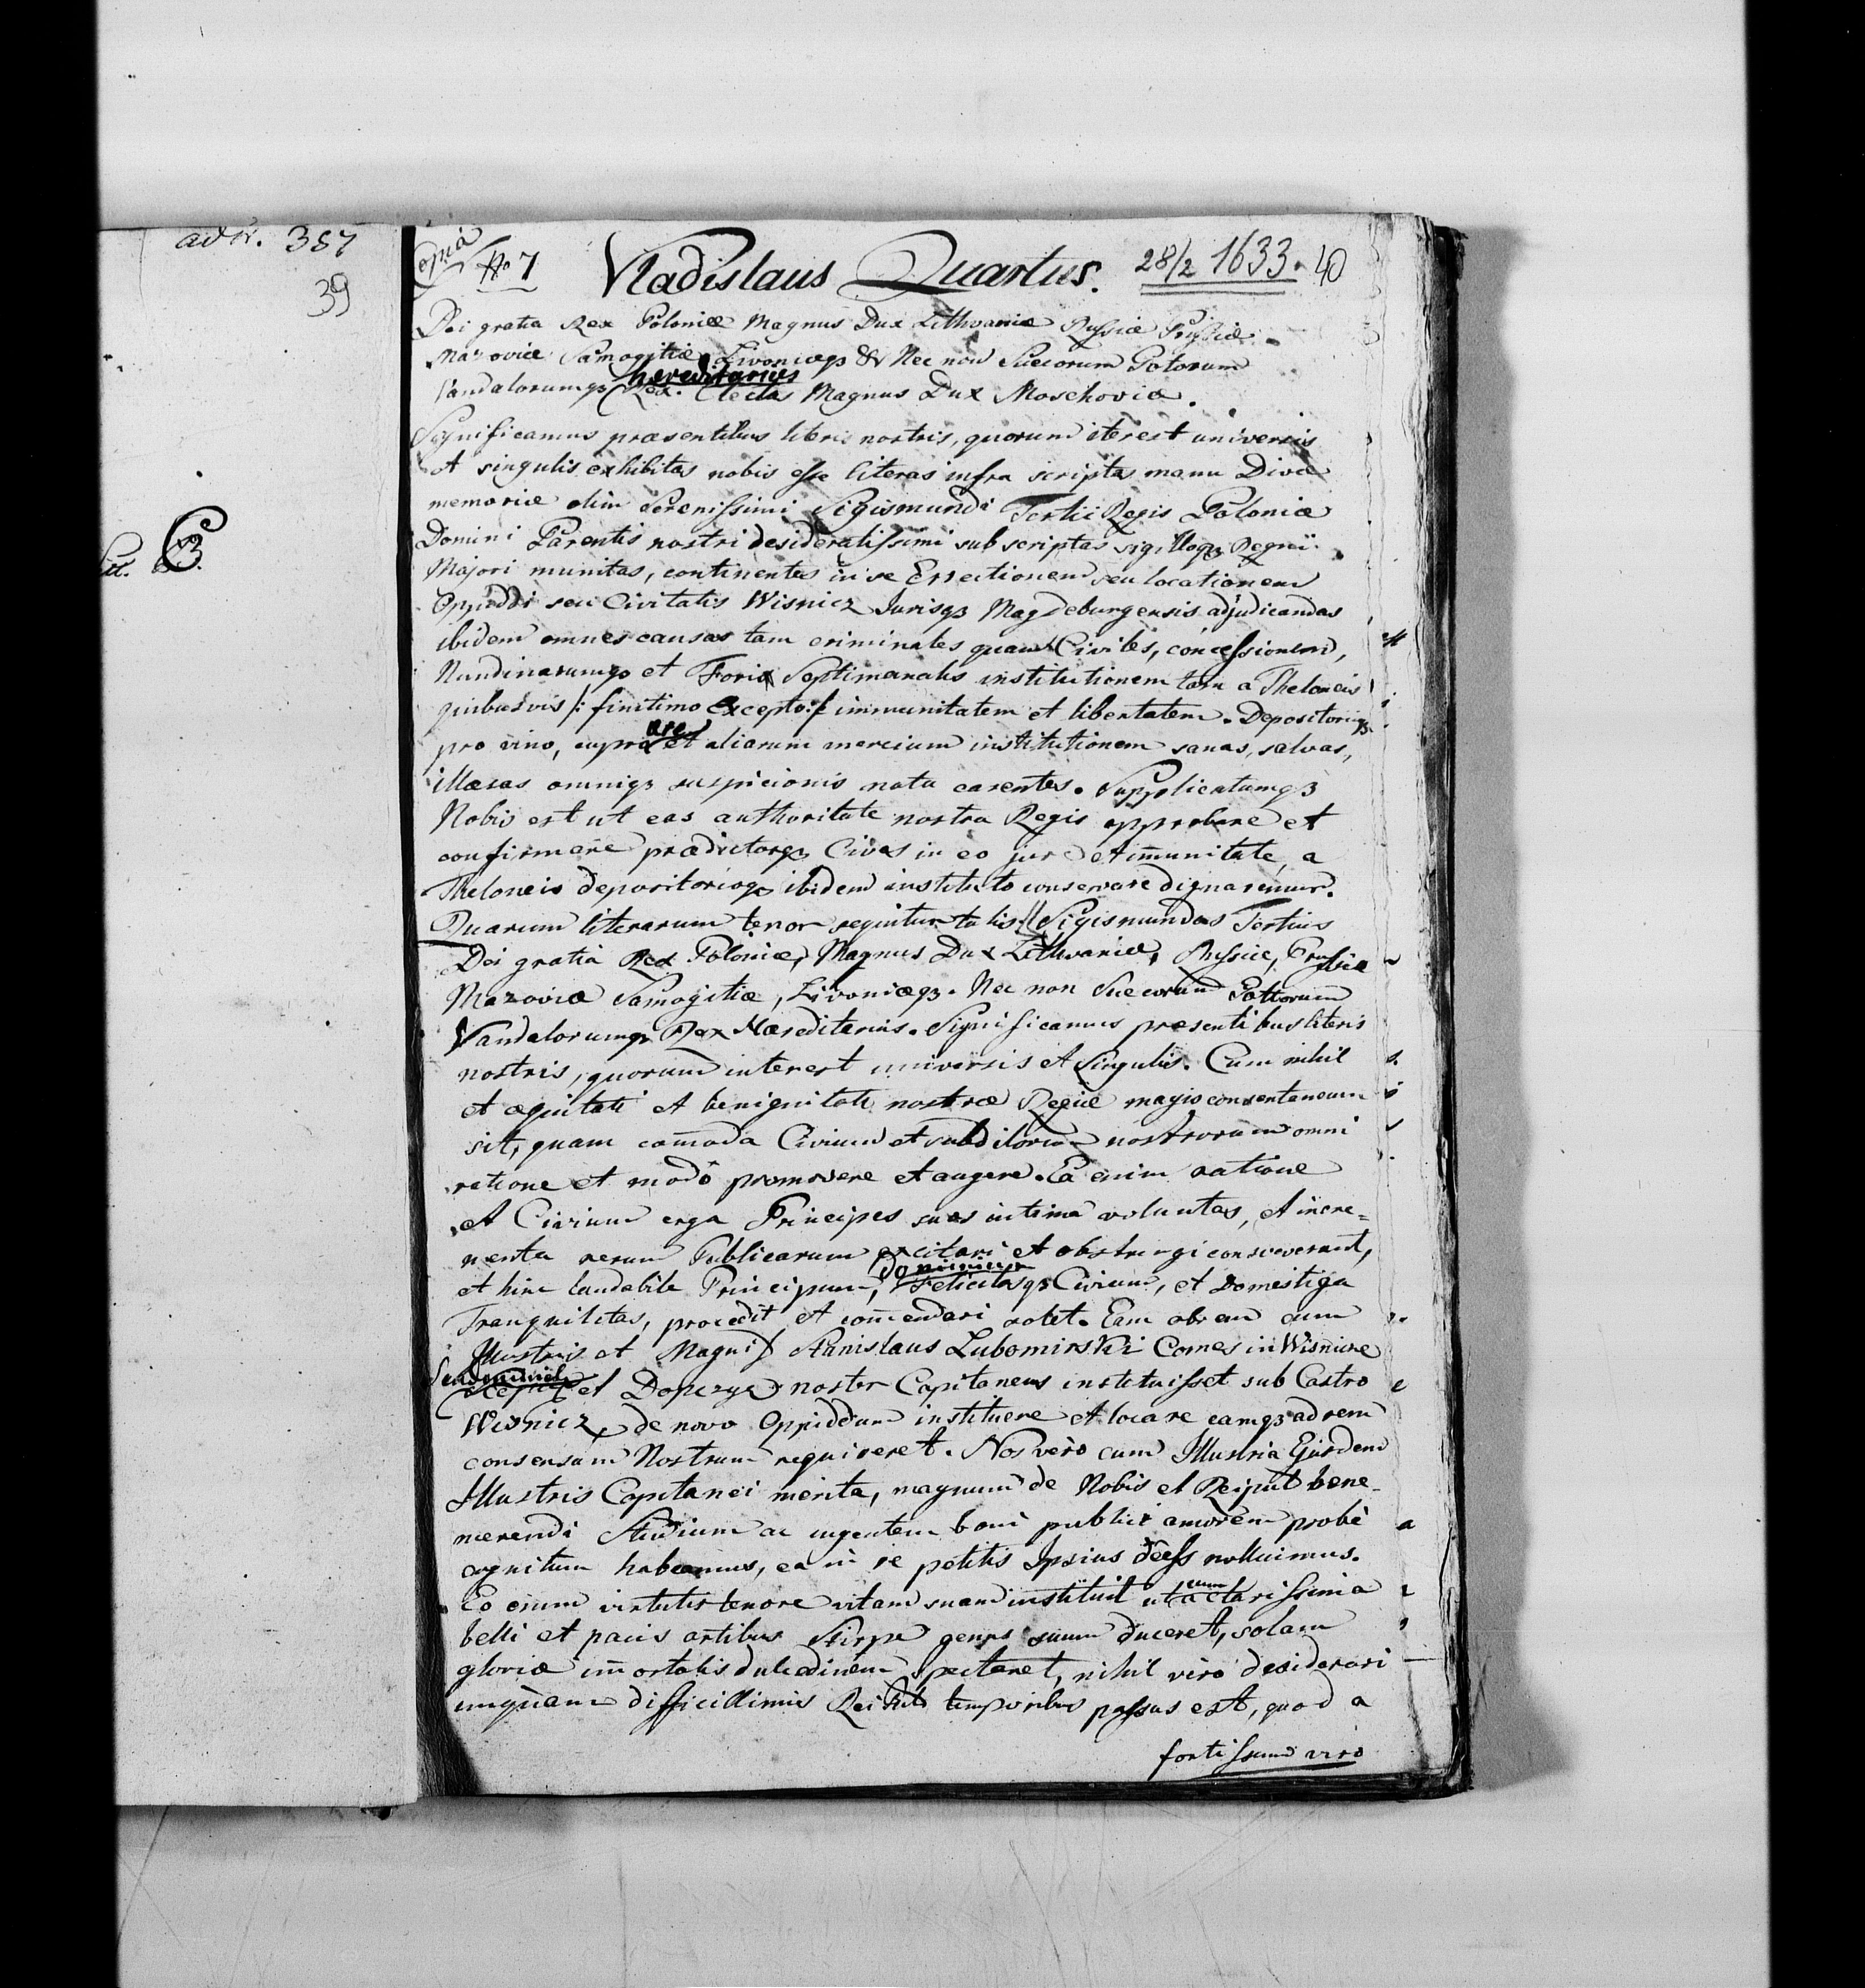 ad N. 387
39
Lit. B.
Copia No 7 Vladislaus Quartus. 28/2 1633. 40
Dei gratia Rex Poloniæ Magnus Dux Lithvaniæ Russiæ Prussiæ
Mazoviæ Samogitiæ Livoniæqȝ & Nec non Suecorum Gotorum
hereditarius
Vandalorumqȝ Rex. Electus Magnus Dux Moschoviæ.
Significamus præsentibus literis nostris, quorum iterest universis
et singulis exhibitas nobis esse literas infra scriptas manu Divæ
memoriæ olim Serenissimi Sigismundi Tertii Regis Poloniæ
Domini Parentis nostri desideratissimi subscriptas sigilloqȝ Regni
Majori munitas, continentes in se Errectionem seu locationem
Oppiddi seu Civitatis Wisnicz Jurisqȝ Magdeburgensis adjudicandas
ibidem omnes causas tam criminales quam Civiles, concessionem,
Nundinarumqȝ et Fori Septimanalis institutionem tam a Theloneis
quibusvis /: finitimo excepto :/ immunitatem et libertatem. Depositoriiqȝ
are
pro vino, cupro et aliarum mercium institutionem sanas, salvas,
illæsas omniqȝ suspicionis nota carentes. Supplicatumqȝ
Nobis est ut eas authoritate nostra Regis approbare et
confirmare prædictosqȝ Cives in eo jure et im̃unitate, a
Theloneis depositorioqȝ ibidem instituto conservare dignaremur.
Quarum literarum tenor sequitur talis // Sigismundus Tertius
Dei gratia Rex Poloniæ, Magnus Dux Lithvaniæ, Russiæ, Prussiæ
Mazoviæ Samogitiæ, Livoniæqȝ. Nec non Suecorum Gottorum
Vandalorumqȝ Rex Hæreditarius. Significamus præsentibus literis
nostris, quorum interest universis et Singulis. Cum nihil
et æquitati et benignitati nostræ Regiæ magis consentaneum
sit, quam com̃oda Civium et subditorum nostrorum omni
ratione et modo promovere et augere. Ea enim ratione
et Civium erga Principes suos intima voluntas, et incre=
menta rerum Publicarum excitari et obstringi consveverunt,
Dominium
et hinc laudabile Principum, Felicitasqȝ Civium, et Domestiga
Tranquilitas, procedit et com̃endari solet. Eam ob rem cum
Illustris et Magnif Stanislaus Lubomirski Comes in Wisnicze
Sendomiriæ
et Dopczyc noster Capitaneus instituisset sub Castro
Wisnicz de novo Oppiddum instituere et locare eamqȝ ad rem
consensum Nostrum requireret. Nos vero cum Illustria Ejusdem
Illustris Capitanei merita, magnum de Nobis et Reipubl bene-
merendi Studium ac ingentem boni publici amorem probè
cognitum habeamus, ea in re petitis Ipsius deess noluimus.
cum
Eo enim virtutis tenore vitam suam instituit ut a clarissima
belli et pacis artibus Stirpe genus suum duceret, solam
gloriæ im̃ortalis dulcedinem spectaret, nihil viro desiderari
unquam difficillimis Rei Publ temporibus passus est, quod a
fortissimo viro